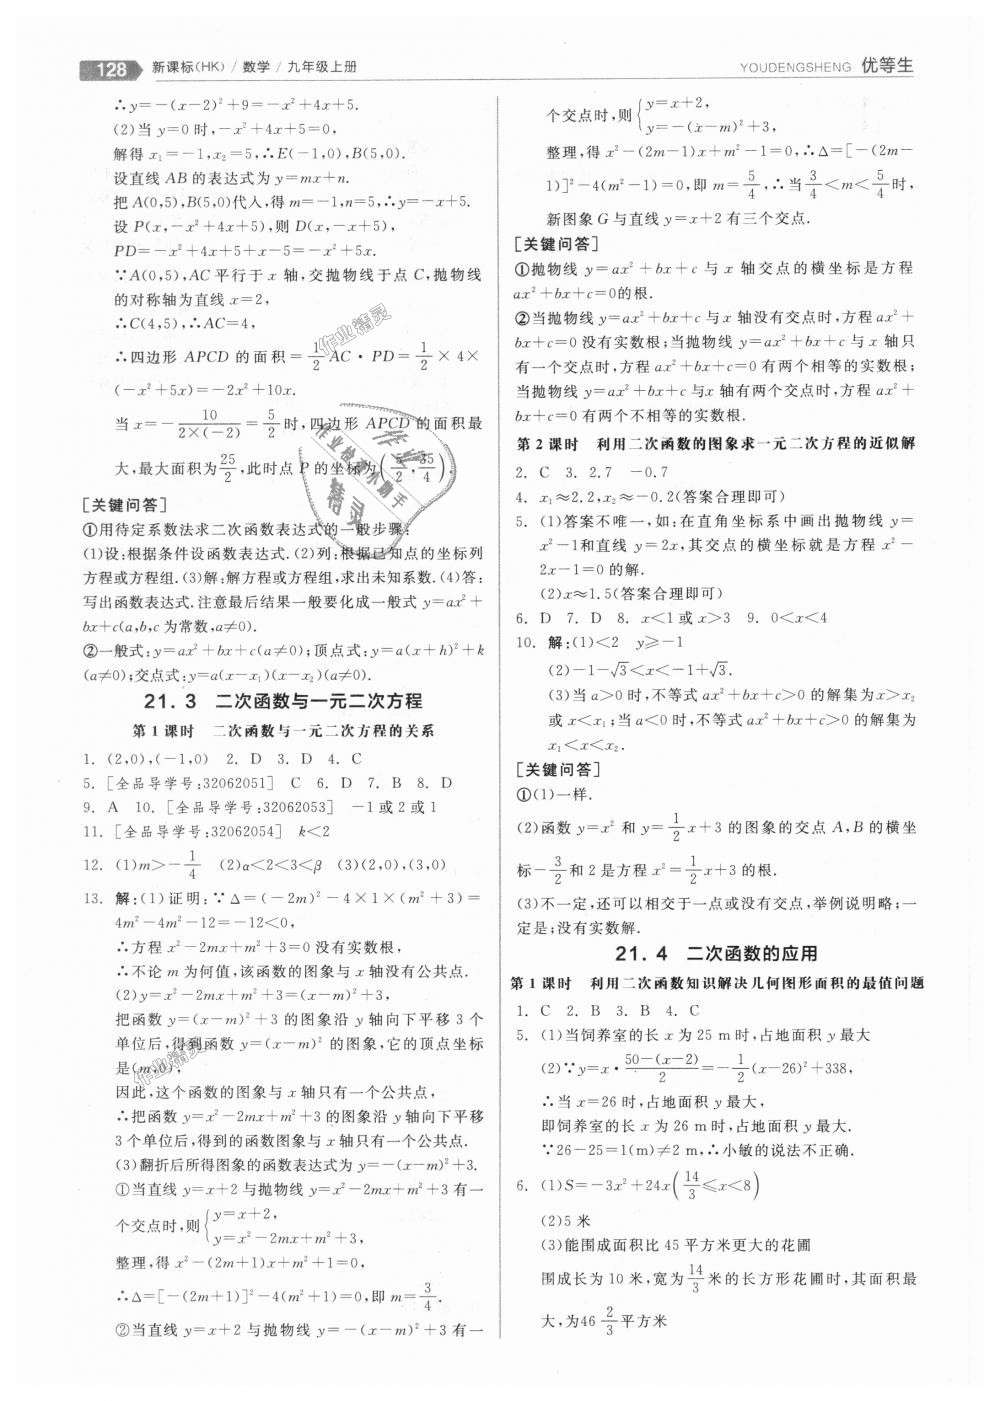 128 新课标(HK) / 数学 / 九年级上册
YOUDENGSHENG 优等生
∴y=-(x-2)²+9=-x²+4x+5.
(2)当 y=0 时,-x²+4x+5=0,
解得 x₁=-1,x₂=5,∴E(-1,0),B(5,0).
设直线 AB 的表达式为 y=mx+n.
把 A(0,5),B(5,0)代入,得 m=-1,n=5,∴y=-x+5.
设 P(x,-x²+4x+5),则 D(x,-x+5),
PD=-x²+4x+5+x-5=-x²+5x.
∵A(0,5),AC 平行于 x 轴,交抛物线于点 C,抛物线
的对称轴为直线 x=2,
∴C(4,5),∴AC=4,
∴四边形 APCD 的面积=1/2 AC·PD=1/2×4×
(-x²+5x)=-2x²+10x.
当 x=-10/(2×(-2))=5/2 时,四边形 APCD 的面积最
大,最大面积为25/2,此时点 P 的坐标为(5/2,35/4).
[关键问答]
①用待定系数法求二次函数表达式的一般步骤:
(1)设:根据条件设函数表达式.(2)列:根据已知点的坐标列
方程或方程组.(3)解:解方程或方程组,求出未知系数.(4)答:
写出函数表达式.注意最后结果一般要化成一般式 y=ax²+
bx+c(a,b,c 为常数,a≠0).
②一般式:y=ax²+bx+c(a≠0);顶点式:y=a(x+h)²+k
(a≠0);交点式:y=a(x-x₁)(x-x₂)(a≠0).
21.3 二次函数与一元二次方程
第 1 课时 二次函数与一元二次方程的关系
1. (2,0),(-1,0) 2. D 3. D 4. C
5. [全品导学号:32062051] C 6. D 7. B 8. D
9. A 10. [全品导学号:32062053] -1 或 2 或 1
11. [全品导学号:32062054] k<2
12. (1)m>-1/4 (2)α<2<3<β (3)(2,0),(3,0)
13. 解:(1)证明:∵Δ=(-2m)²-4×1×(m²+3)=
4m²-4m²-12=-12<0,
∴方程 x²-2mx+m²+3=0 没有实数根,
∴不论 m 为何值,该函数的图象与 x 轴没有公共点.
(2)y=x²-2mx+m²+3=(x-m)²+3,
把函数 y=(x-m)²+3 的图象沿 y 轴向下平移 3 个
单位后,得到函数 y=(x-m)² 的图象,它的顶点坐标
是(m,0),
因此,这个函数的图象与 x 轴只有一个公共点,
∴把函数 y=x²-2mx+m²+3 的图象沿 y 轴向下平移
3 个单位后,得到的函数图象与 x 轴只有一个公共点.
(3)翻折后所得图象的函数表达式为 y=-(x-m)²+3.
①当直线 y=x+2 与抛物线 y=x²-2mx+m²+3 有一
个交点时,则{y=x+2,
y=x²-2mx+m²+3,
整理,得 x²-(2m+1)x+m²+1=0,
∴Δ=[-(2m+1)]²-4(m²+1)=0,即 m=3/4.
②当直线 y=x+2 与抛物线 y=-(x-m)²+3 有一
个交点时,则{y=x+2,
y=-(x-m)²+3,
整理,得 x²-(2m-1)x+m²-1=0,∴Δ=[-(2m-
1)]²-4(m²-1)=0,即 m=5/4,∴当3/4<m<5/4时,
新图象 G 与直线 y=x+2 有三个交点.
[关键问答]
①抛物线 y=ax²+bx+c 与 x 轴交点的横坐标是方程
ax²+bx+c=0的根.
②当抛物线 y=ax²+bx+c 与 x 轴没有交点时,方程 ax²+
bx+c=0 没有实数根;当抛物线 y=ax²+bx+c 与 x 轴只
有一个交点时,方程 ax²+bx+c=0 有两个相等的实数根;
当抛物线 y=ax²+bx+c 与x 轴有两个交点时,方程 ax²+
bx+c=0 有两个不相等的实数根.
第 2 课时 利用二次函数的图象求一元二次方程的近似解
2. C 3. 2.7 -0.7
4. x₁≈2.2,x₂≈-0.2(答案合理即可)
5. (1)答案不唯一,如:在直角坐标系中画出抛物线 y=
x²-1和直线 y=2x,其交点的横坐标就是方程 x²-
2x-1=0 的解.
(2)x≈1.5(答案合理即可)
6. D 7. D 8. x<1 或 x>3 9. 0<x<4
10. 解:(1)<2 y≥-1
(2)-1-√3<x<-1+√3.
(3)当 a>0 时,不等式 ax²+bx+c>0 的解集为 x>x₂
或 x<x₁;当 a<0 时,不等式 ax²+bx+c>0 的解集为
x₁<x<x₂.
[关键问答]
①(1)一样.
(2)函数 y=x² 和 y=1/2x+3 的图象的交点 A,B 的横坐
标-3/2和 2 是方程 x²=1/2x+3 的根.
(3)不一定,还可以相交于一点或没有交点,举例说明略;一
定是;没有实数解.
21.4 二次函数的应用
第 1 课时 利用二次函数知识解决几何图形面积的最值问题
1. C 2. B 3. B 4. C
5. (1)当饲养室的长 x 为 25 m 时,占地面积 y 最大
(2)∵y=x·(50-(x-2))/2=-1/2(x-26)²+338,
∴当 x=26 时,占地面积 y 最大,
即饲养室的长 x 为 26 m 时,占地面积 y 最大.
∵26-25=1(m)≠2 m,∴小敏的说法不正确.
6. (1)S=-3x²+24x(14/3≤x<8)
(2)5 米
(3)能围成面积比 45 平方米更大的花圃
围成长为 10 米,宽为14/3米的长方形花圃时,其面积最
大,为46 2/3平方米
作业精灵
作业检查小助手
作业精灵
作业精灵